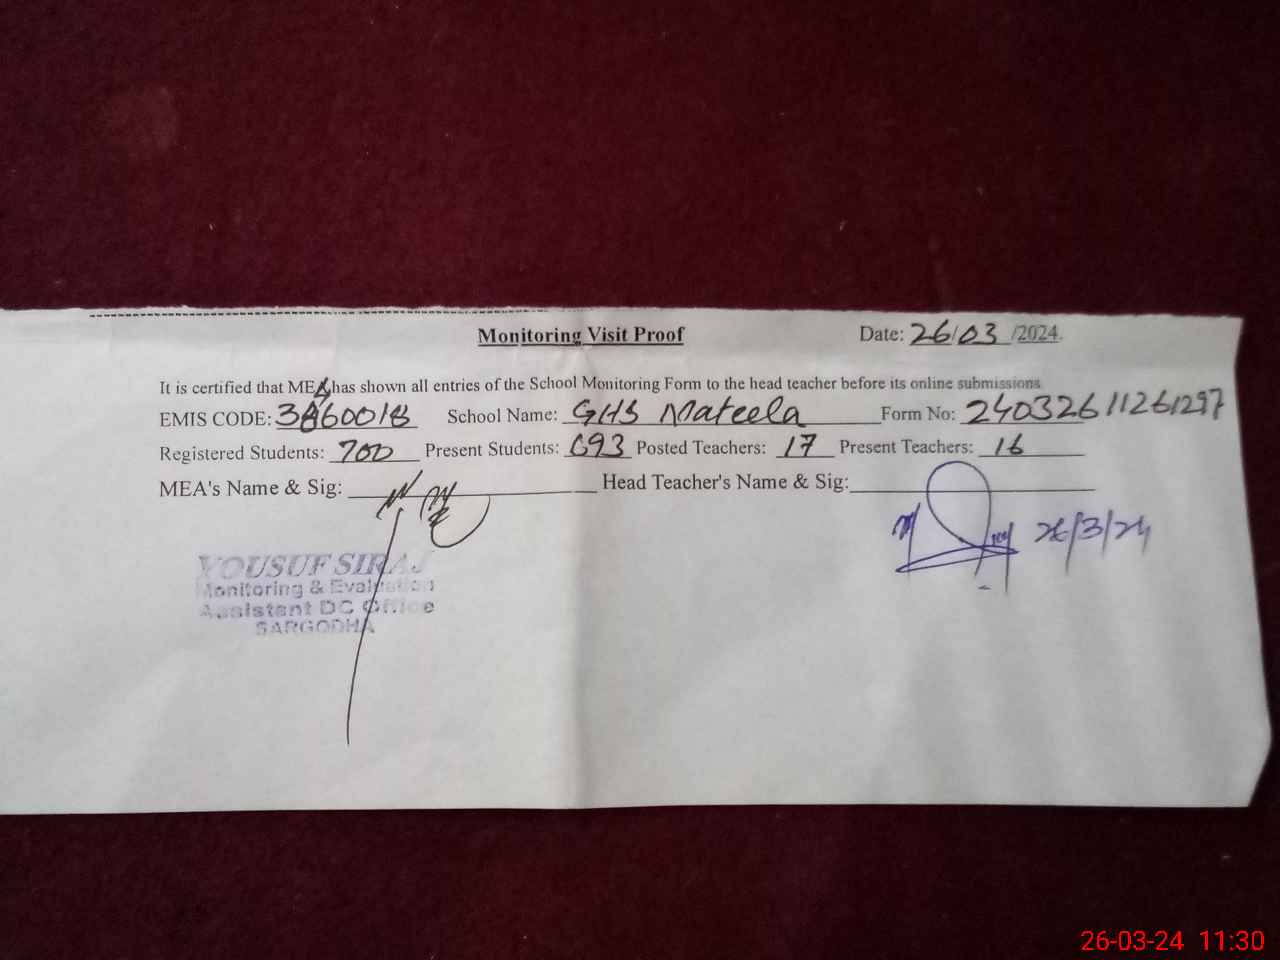 Monitoring Visit Proof Date: 26/03/2024.
It is certified that MEA has shown all entries of the School Monitoring Form to the head teacher before its online submissions
EMIS CODE: 3860018 School Name: GHS Mateela Form No: 24032611261297
Registered Students: 700 Present Students: 693 Posted Teachers: 17 Present Teachers: 16
MEA's Name & Sig: Head Teacher's Name & Sig:
26/3/24
YOUSUF SIRAJ
Monitoring & Evaluation
Assistant DC Office
SARGODHA
26-03-24 11:30